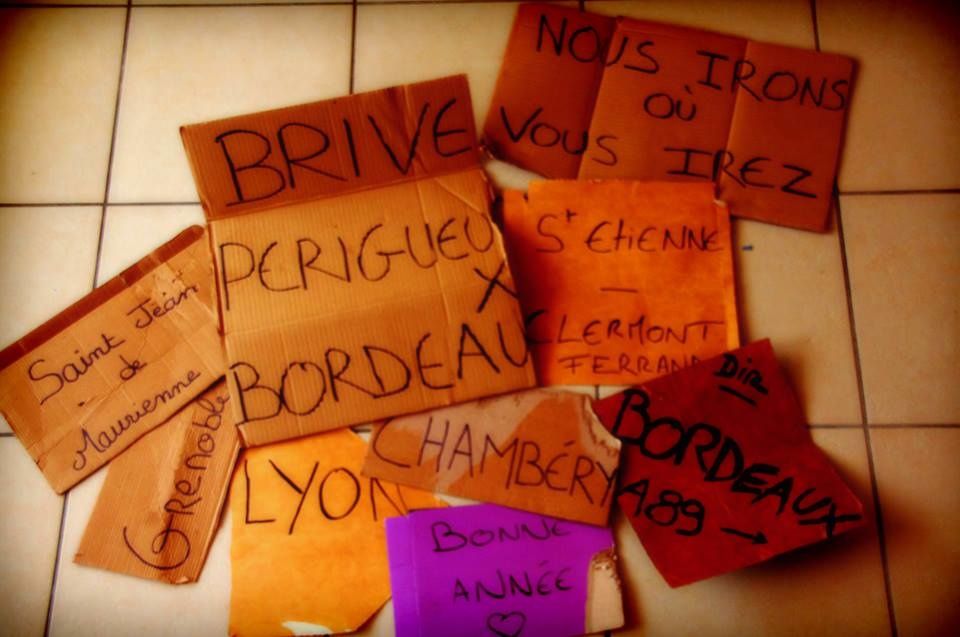 NOUS IRONS
OÙ
VOUS IREZ
BRIVE
PERIGUEU
X
BORDEAU
St EtIENNE
—
CLERMONT
FERRAND
Saint Jean
de
Maurienne
Grenoble
LYON
CHAMBÉRY
Dir
BORDEAUX
A89 →
BONNE
ANNÉE
♡